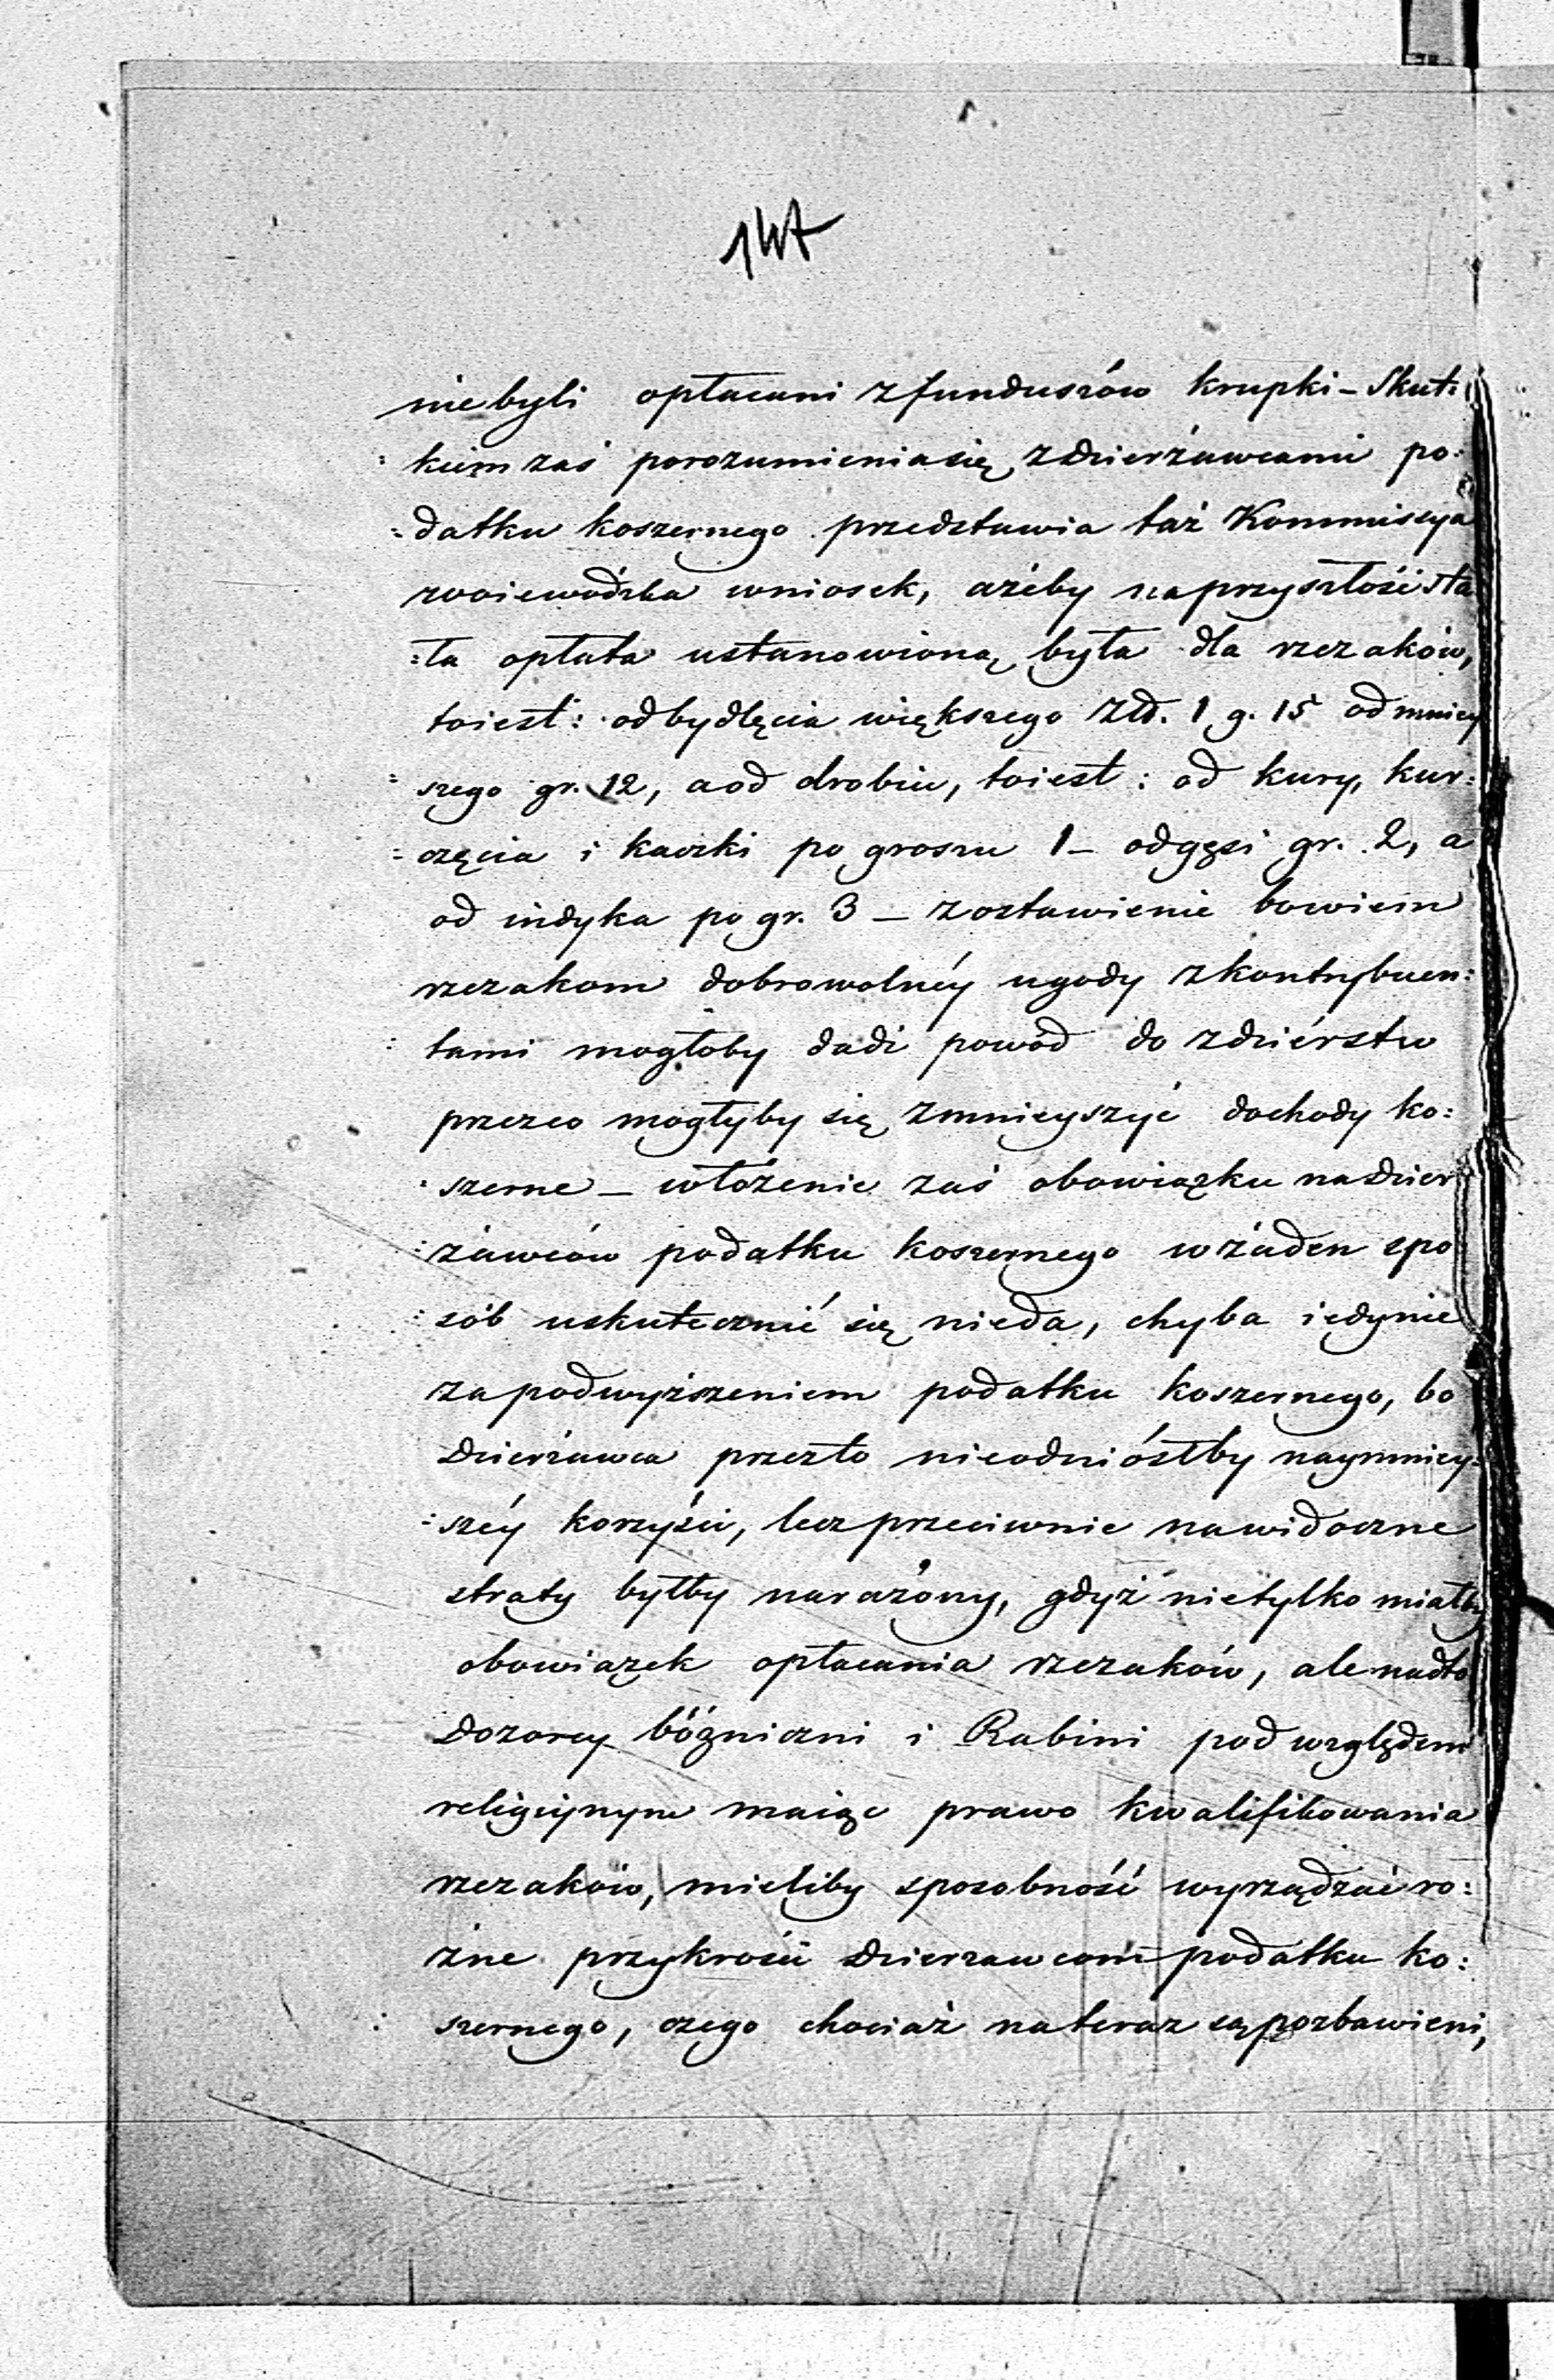 147
niebyli opłacani z funduszów krupki – Skut:
: kiem zaś porozumienia się z dzierżawcami po:
: datku koszernego przedstawia taż Kommissya
woiewódzka wniosek, ażeby naprzyszłość sta
: ła opłata ustanowioną była dla rzezaków,
toiest: od bydlęcia większego Złd. 1 g. 15 od mniey
: szego gr. 12, a od drobiu, toiest: od kury, kur:
: częcia i kaczki po groszu 1 – od gęsi gr. 2, a
od indyka po gr. 3 – zostawienie bowiem
rzezakom dobrowolnéy ugody z kontrybuen:
: tami mogłoby dadź powód do zdzierstw
przezco mogłyby się zmnieyszyć dochody ko:
: szerne – włożenie zaś obowiązku na dzier
: żawców podatku koszernego w żaden spo
: sób uskutecznić się nieda, chyba iedynie
za podwyższeniem podatku koszernego, bo
Dzierżawca przezto nieodniósłby naymniey:
: széy korzyści, lecz przeciwnie na widoczne
straty byłby narażony, gdyż nietylko miałby
obowiązek opłacania rzezaków, ale nadto
Dozorcy bóżniczni i Rabini pod względem
religiynym maiąc prawo kwalifikowania
rzezaków, mieliby sposobność wyrządzać ro:
żne przykrości Dzierzawcom podatku ko:
: szernego, czego chociaż na teraz są pozbawieni,